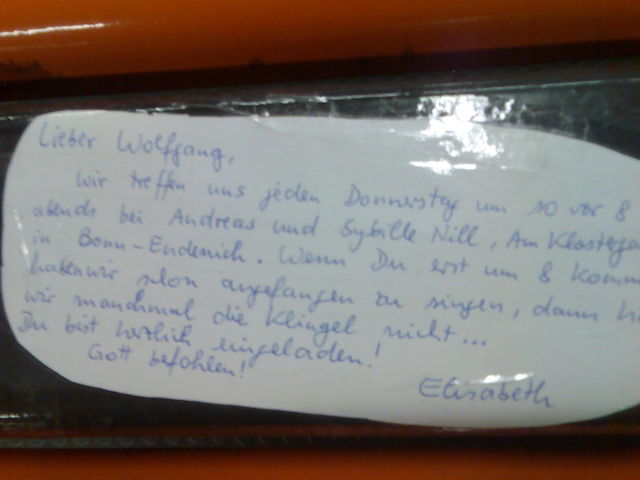 Lieber Wolfgang,
wir treffen uns jeden Donnerstag um 10 vor 8
abends bei Andreas und Sybille Nill, Am Klosterga
in Bonn-Endenich. Wenn Du erst um 8 komm
haben wir schon angefangen zu singen, dann hö
wir manchmal die Klingel nicht...
Du bist herzlich eingeladen!
Gott befohlen!
Elisabeth